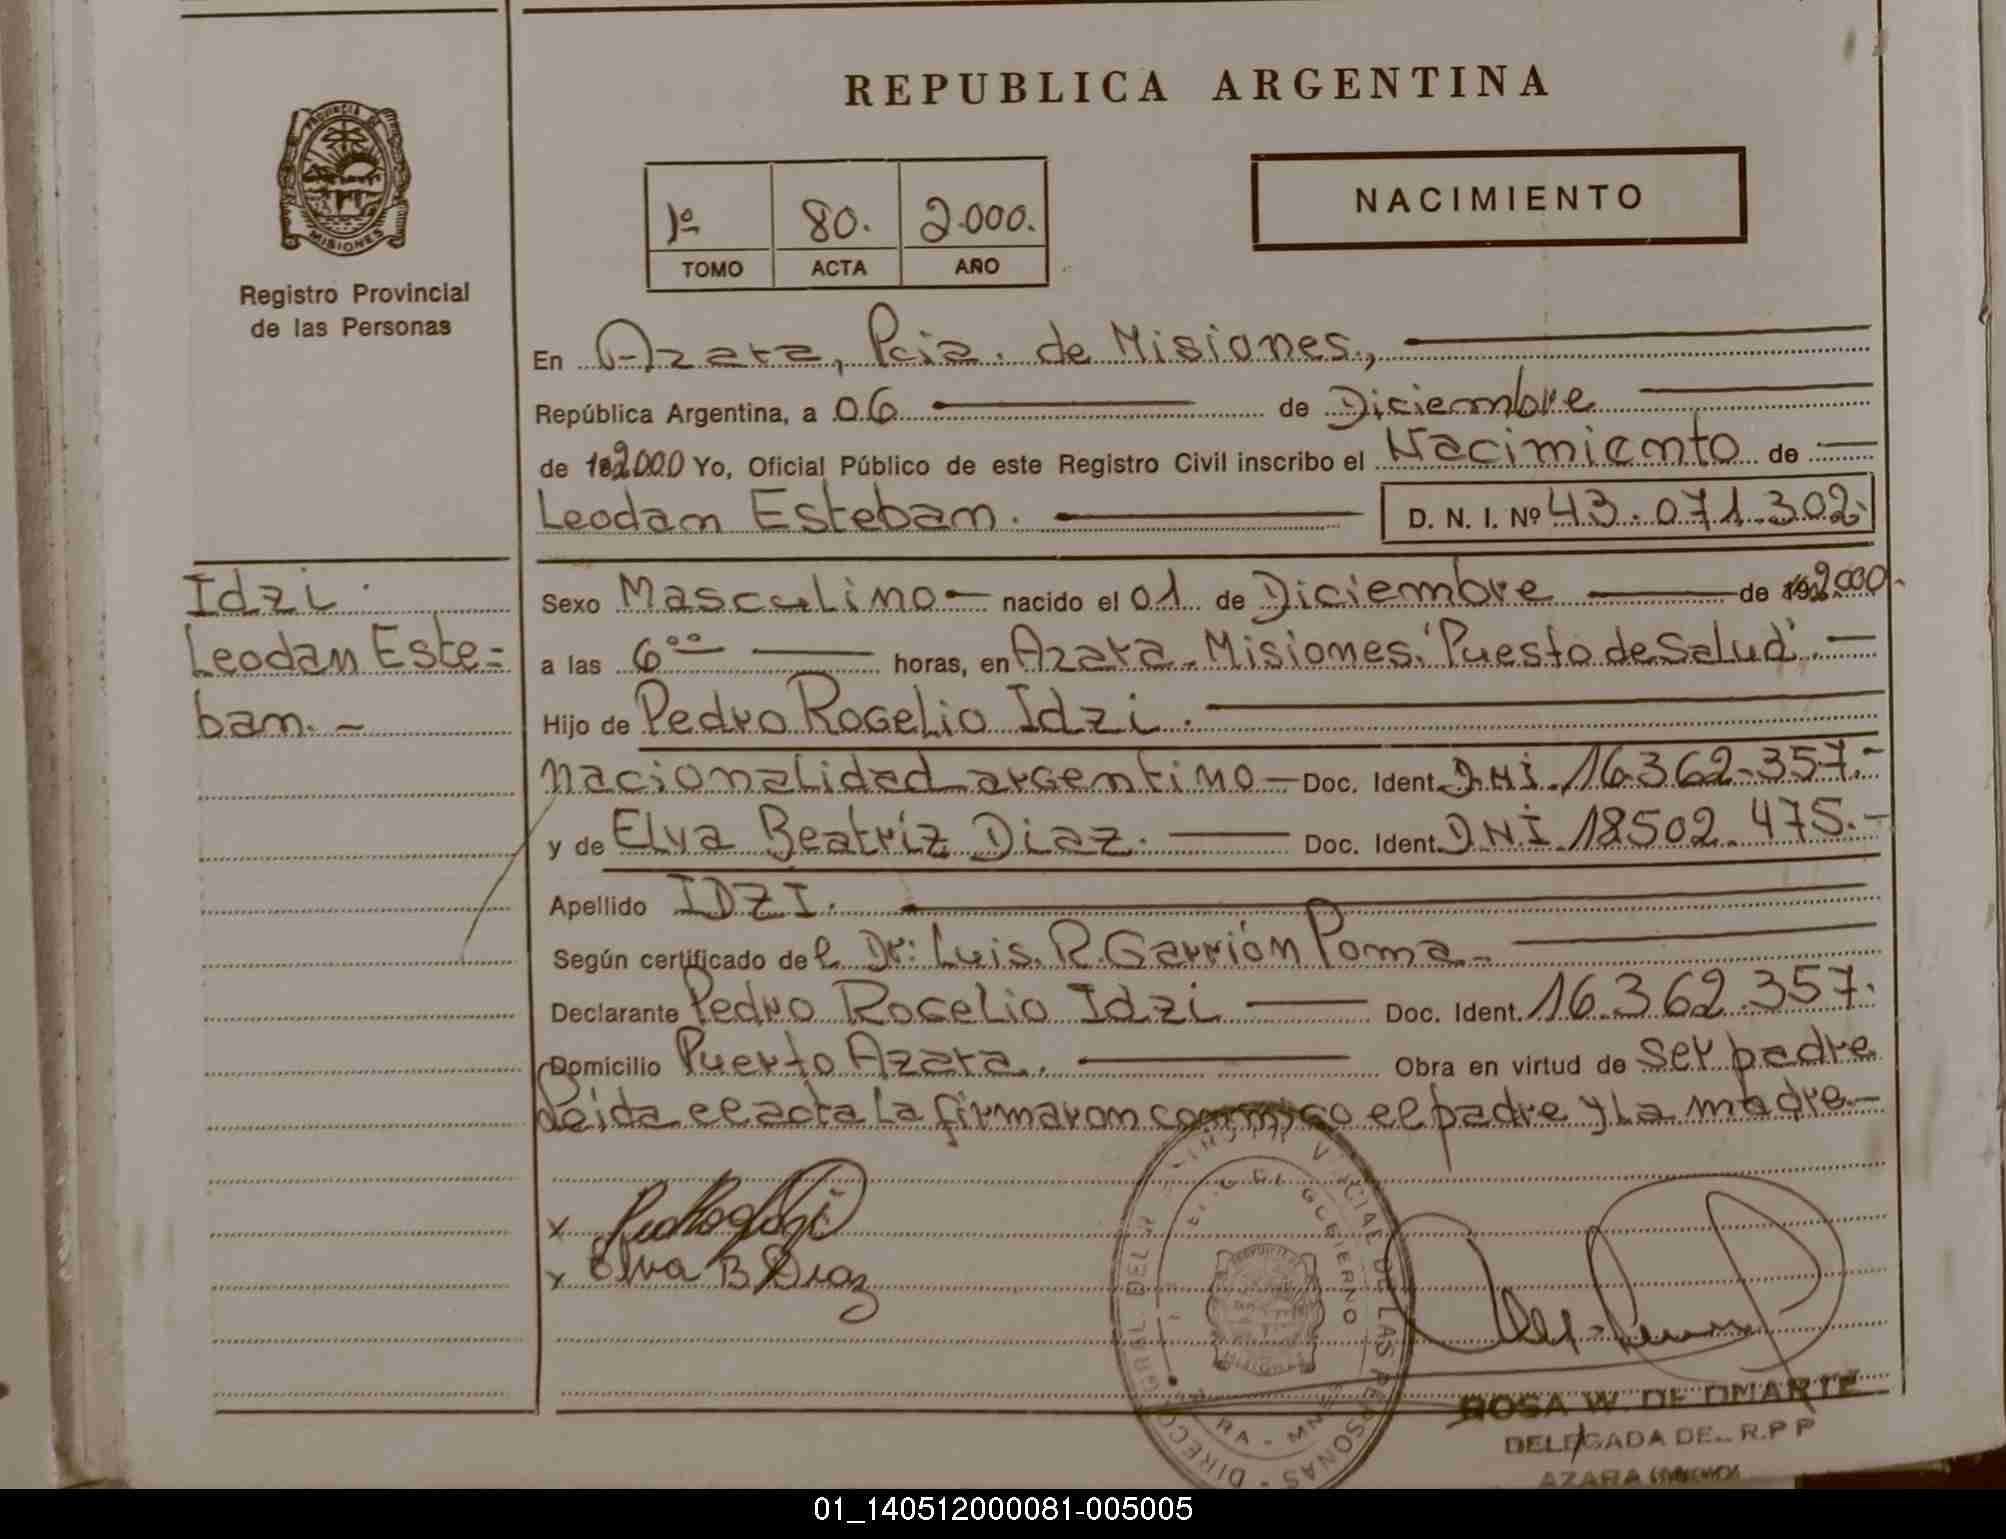 REPUBLICA ARGENTINA
PROVINCIA DE
MISIONES
Registro Provincial
de las Personas
1º 80. 2.000.
TOMO ACTA AÑO
NACIMIENTO
En Azara, Pcia. de Misiones.,
República Argentina, a 06 de Diciembre
de 2000 Yo, Oficial Público de este Registro Civil inscribo el Nacimiento de
Leodan Esteban. D. N. I. Nº 43.071.302.
Idzi.
Leodan Este=
ban. -
Sexo Masculino - nacido el 01 de Diciembre de 2000.
a las 6 ºº horas, en Azara - Misiones. "Puesto de Salud". -
Hijo de Pedro Rogelio Idzi.
nacionalidad argentino - Doc. Ident. DNI. 16.362.357.-
y de Elva Beatriz Diaz. Doc. Ident. DNI. 18502.475.-
Apellido IDZI.
Según certificado del Dr: Luis. R. Garrión Poma.
Declarante Pedro Rogelio Idzi Doc. Ident. 16.362.357.
Domicilio Puerto Azara. Obra en virtud de ser padre
leida el acta la firmaron conmigo el padre y la madre.-
x
x Elva B Diaz
DE LAS PERSONAS - DIRECC
GOBIERNO
MISIONES
ROSA W. DE DMARTE
DELEGADA DEL R.P P
AZARA
01_140512000081-005005